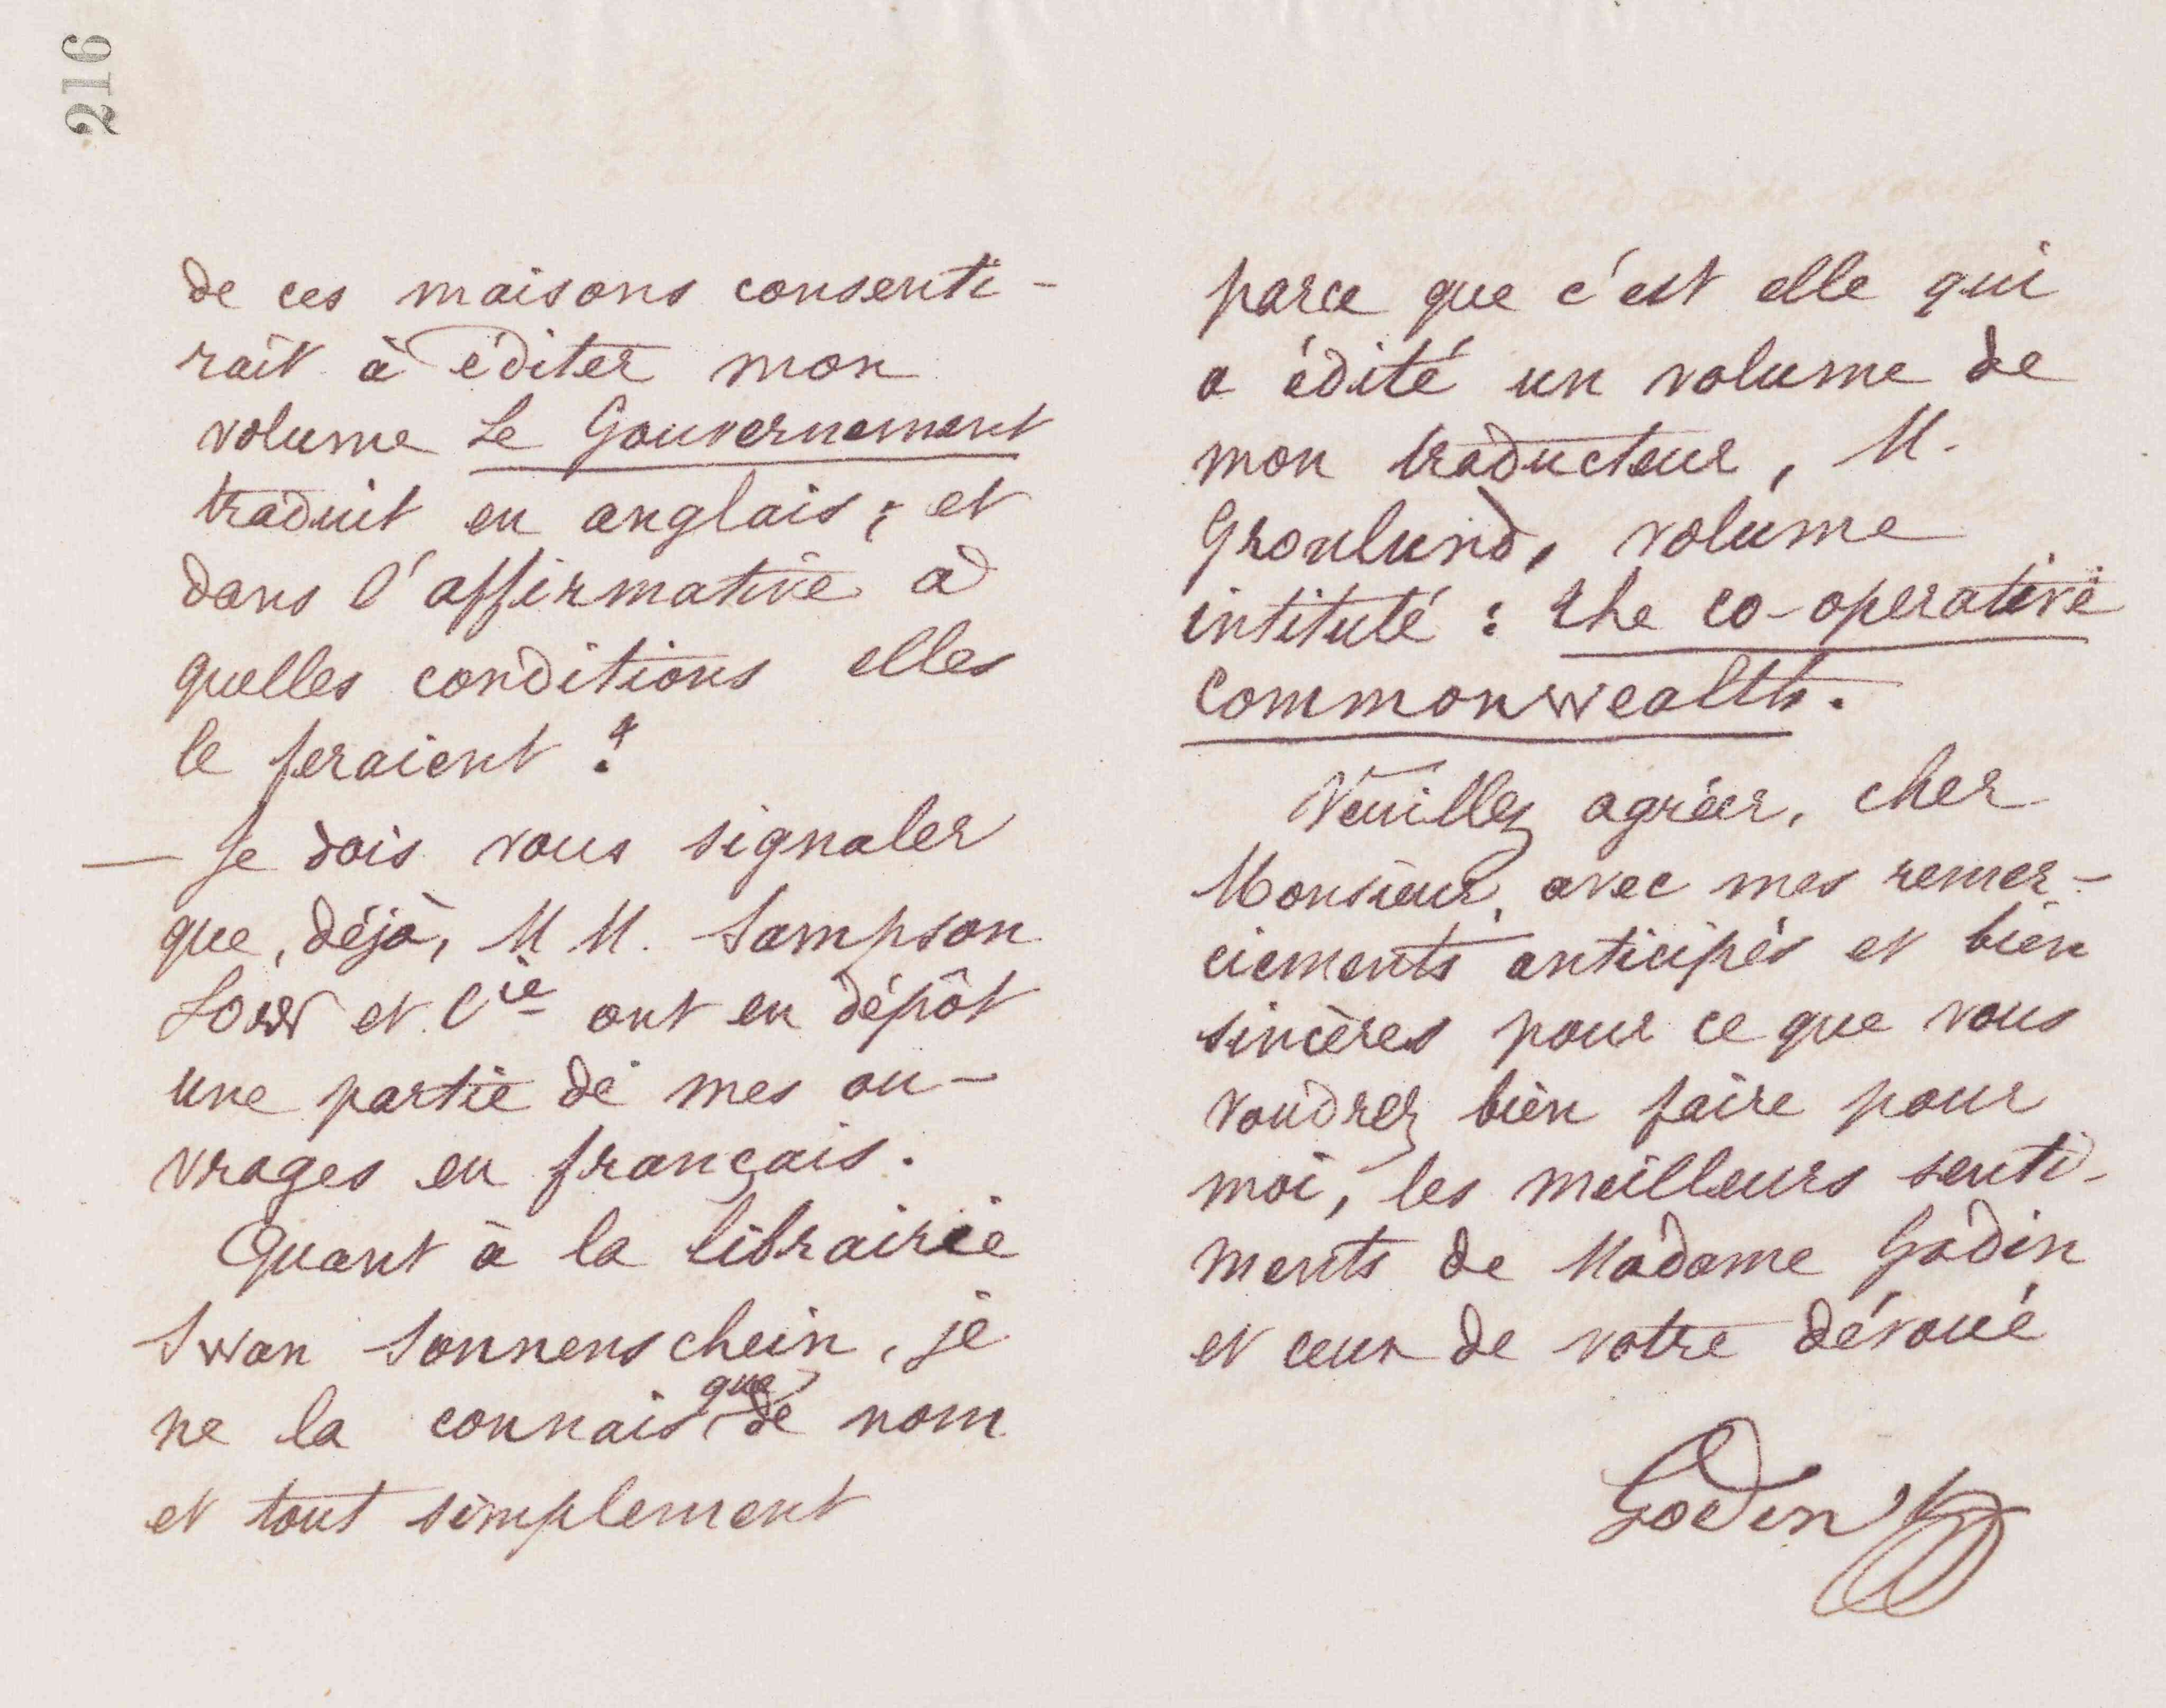 216
de ces maisons consenti-
rait à éditer mon
volume Le Gouvernement
traduit en anglais ; et
dans l'affirmative à
quelles conditions elles
le feraient ?
— Je dois vous signaler
que, déjà, M M. Sampson
Low et Cie ont en dépôt
une partie de mes ou-
vrages en français.
Quant à la librairie
Swan Sonnenschein, je
ne la connais que de nom
et tout simplement
parce que c'est elle qui
a édité un volume de
mon traducteur, M.
Gronlund, volume
intitulé : The co-operative
commonwealth.
Veuillez agréer, cher
Monsieur, avec mes remer-
ciements anticipés et bien
sincères pour ce que vous
voudrez bien faire pour
moi, les meilleurs senti-
ments de Madame Godin
et ceux de votre dévoué
Godin